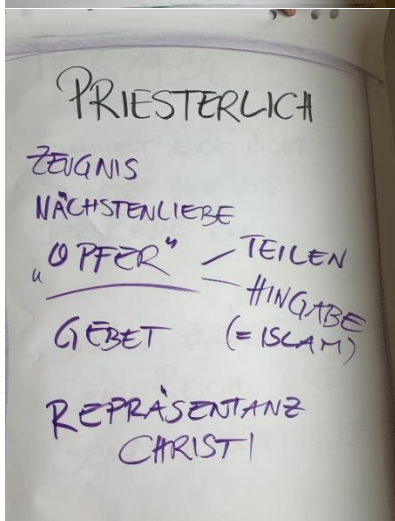 PRIESTERLICH
ZEUGNIS
NÄCHSTENLIEBE
„OPFER" – TEILEN
– HINGABE
(= ISLAM)
GEBET
REPRÄSENTANZ
CHRISTI